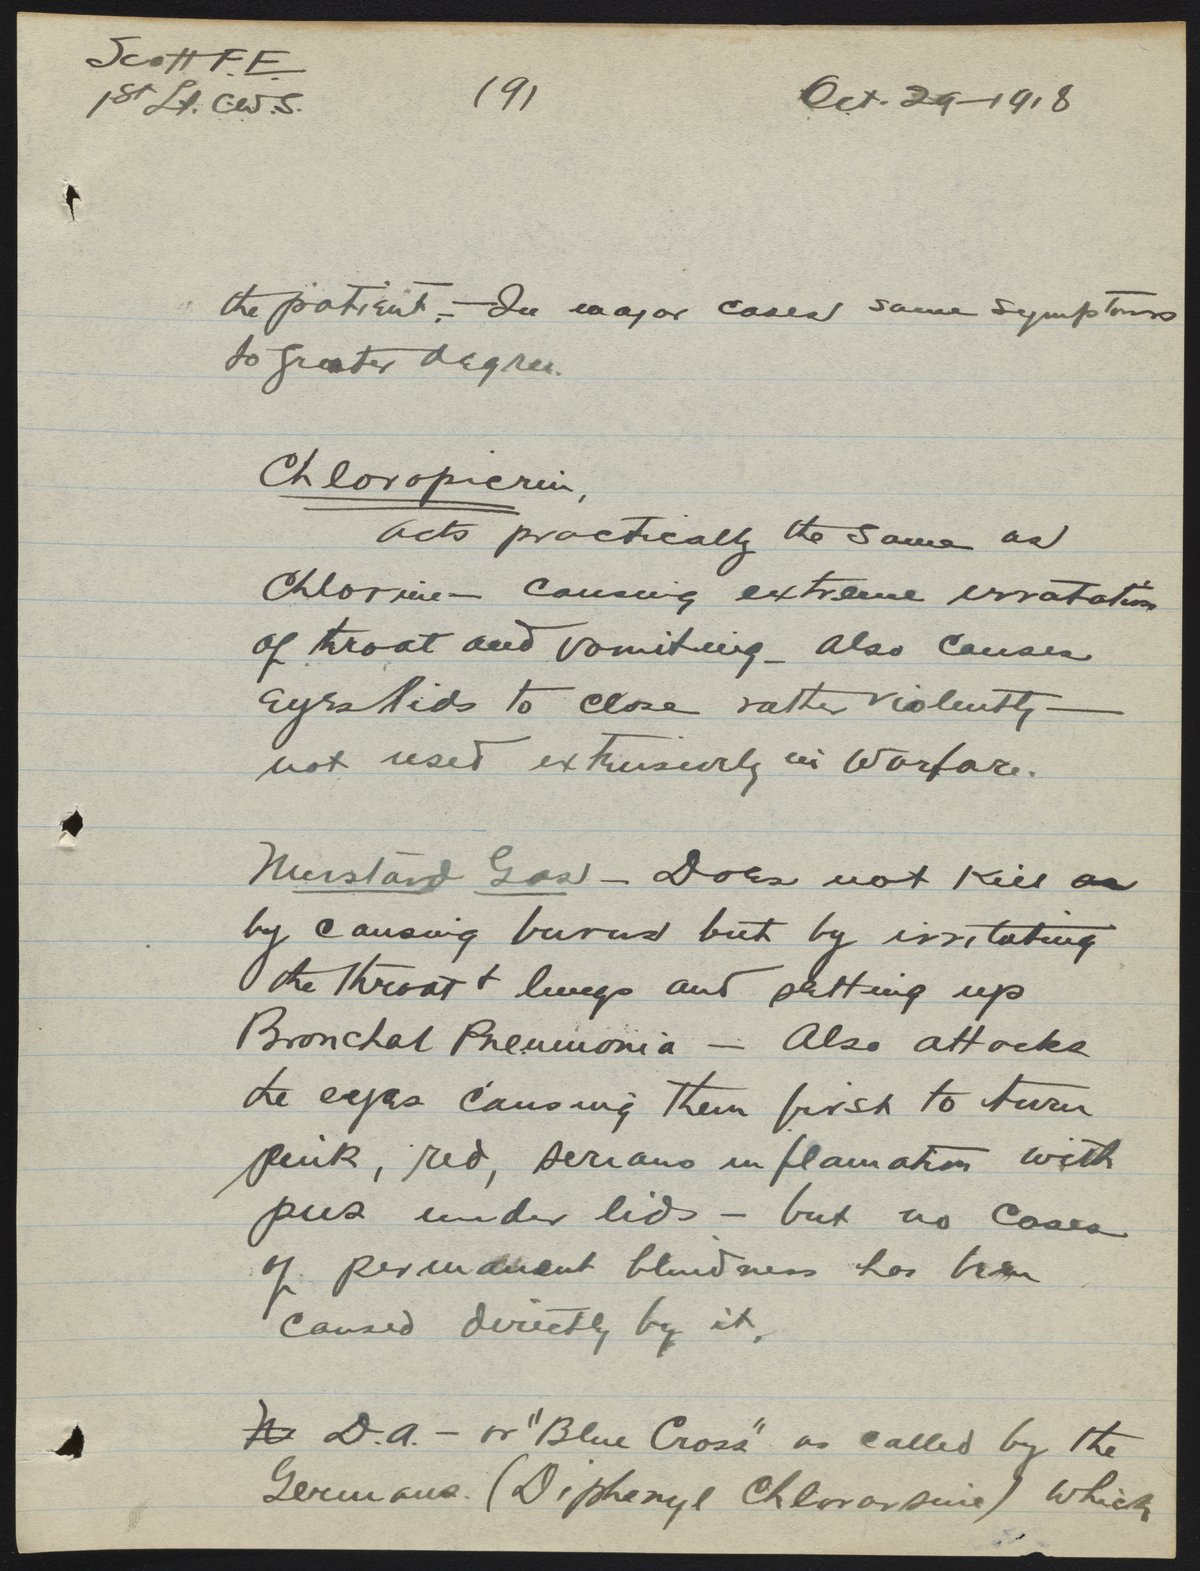 Scott F. E.
1st Lt. C.W.S.
(9)
Oct. 29-1918
the patient. — In major cases same symptoms
to greater degree.
Chloropicrin,
acts practically the same as
Chlorine — causing extreme irratation
of throat and vomiting — also causes
eyes lids to close rather violently —
not used extensively in warfare.
Mustard Gas — Does not kill as
by causing burns but by irritating
the throat & lungs and setting up
Bronchal Pneumonia — Also attacks
the eyes causing them first to turn
pink, red, serious inflamation with
pus under lids — but no cases
of permanent blindness has been
caused directly by it.
D.A. — or "Blue Cross" as called by the
Germans. (Diphenyl Chlorarsine) which